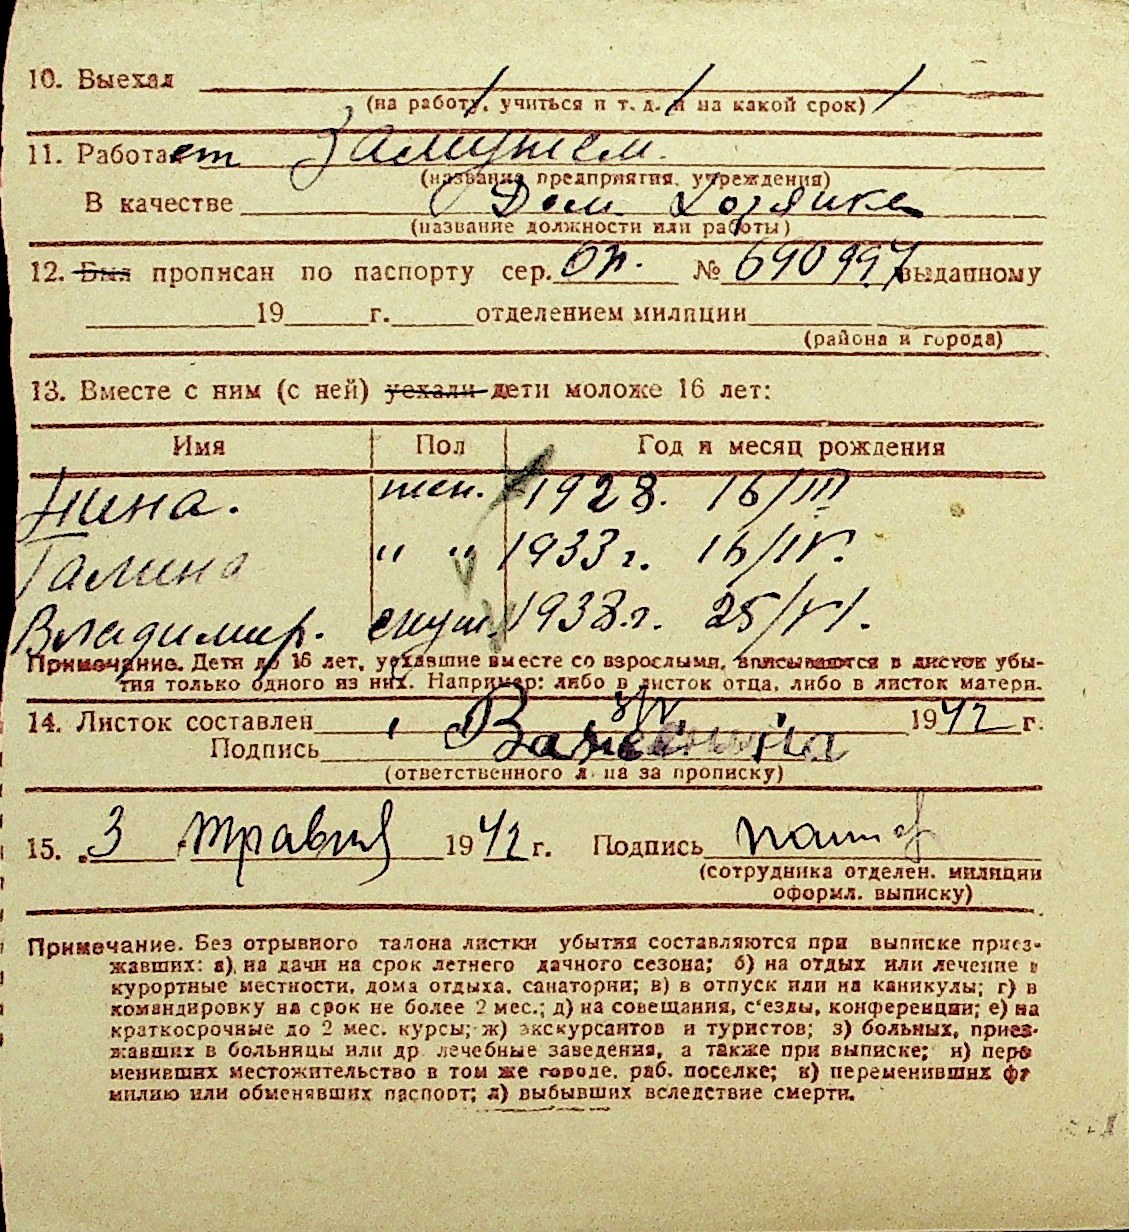 10. Выехал
(на работу, учиться и т. д. и на какой срок)
11. Работает Замужем.
(название предприятия, учреждения)
В качестве Дом. Хозяйка
(название должности или работы)
12. Был прописан по паспорту сер. Оп. № 690997 выданному
19 г. отделением милиции
(района и города)
13. Вместе с ним (с ней) уехали дети моложе 16 лет:
Имя Пол Год и месяц рождения
Нина. жен. 1928. 16/III
Галина " " 1933 г. 16/IV.
Владимир. 1938 г. 25/VI.
Примечание. Дети до 16 лет, уехавшие вместе со взрослыми, вписываются в листок убы-
тия только одного из них. Например: либо в листок отца, либо в листок матери.
14. Листок составлен 3/V 1942 г.
Подпись
(ответственного лица за прописку)
15. 3 травня 1942 г. Подпись
(сотрудника отделен. милиции
оформл. выписку)
Примечание. Без отрывного талона листки убытия составляются при выписке приез-
жавших: а) на дачи на срок летнего дачного сезона; б) на отдых или лечение в
курортные местности, дома отдыха, санатории; в) в отпуск или на каникулы; г) в
командировку на срок не более 2 мес.; д) на совещания, с'езды, конференции; е) на
краткосрочные до 2 мес. курсы; ж) экскурсантов и туристов; з) больных, приез-
жавших в больницы или др. лечебные заведения, а также при выписке; и) пере
менивших местожительство в том же городе, раб. поселке; к) переменивших фа
милию или обменявших паспорт; л) выбывших вследствие смерти.